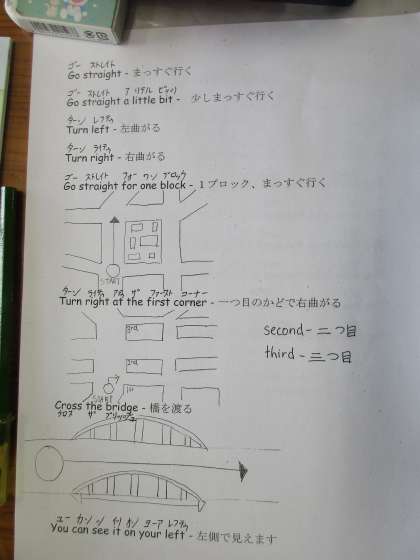 ゴー ストレイト
Go straight - まっすぐ行く
ゴー ストレイト ア リトル ビット
Go straight a little bit - 少しまっすぐ行く
ターン レフト
Turn left - 左曲がる
ターン ライト
Turn right - 右曲がる
ゴー ストレイト フォー ワン ブロック
Go straight for one block - 1ブロック、まっすぐ行く
START
ターン ライト アト ザ ファースト コーナー
Turn right at the first corner - 一つ目のかどで右曲がる
second - 二つ目
third - 三つ目
3rd
2nd
1st
START
Cross the bridge - 橋を渡る
クロス ザ ブリッジ
ユー カン オン ユーア レフト
You can see it on your left - 左側で見えます